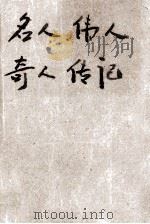 名人 伟人
奇人 传记
mtoou.info